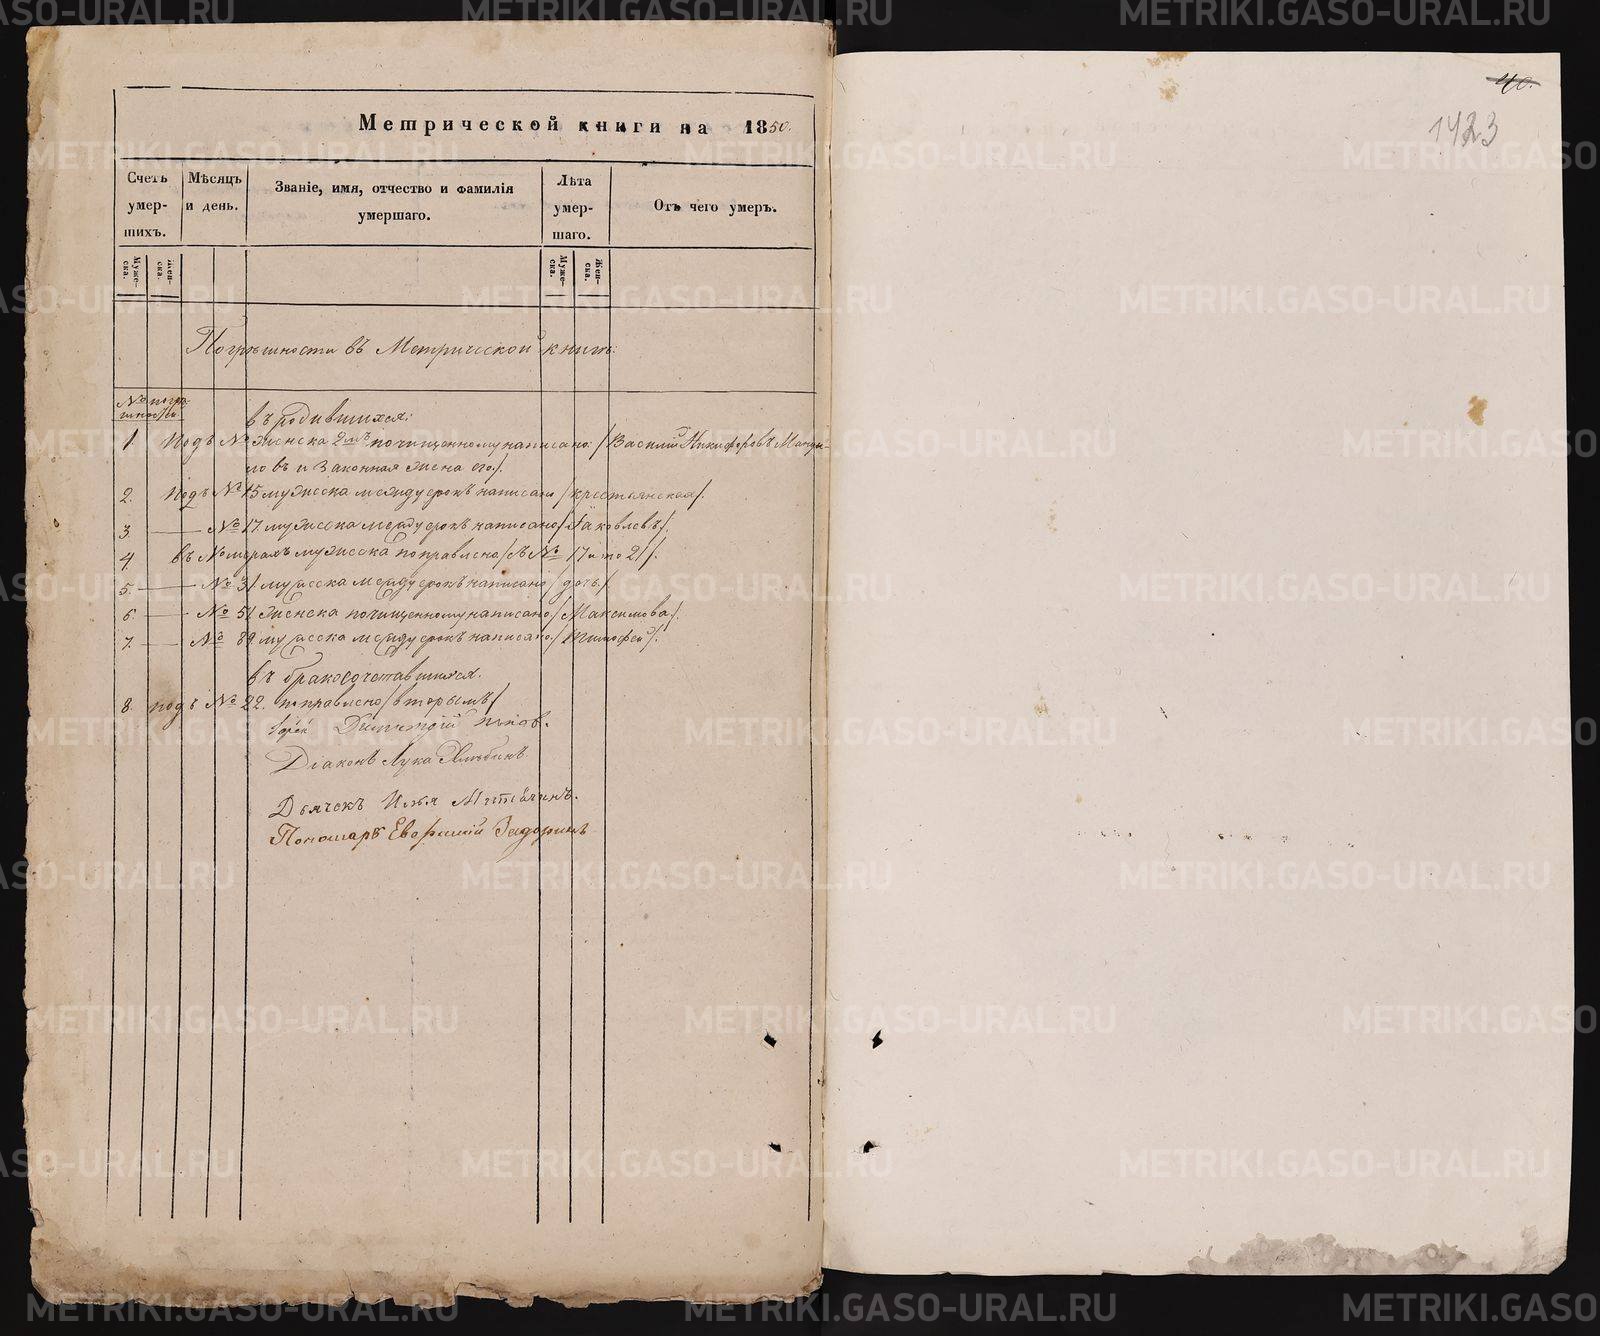 Метрической книги на 1850.
Счетъ умер- шихъ.
Мѣсяцъ и день.
Званіе, имя, отчество и фамилія умершаго.
Лѣта умер- шаго.
Отъ чего умеръ.
Муже- ска.
Жен- ска.
Муже- ска.
Жен- ска.
Погрѣшности въ Метрической книгѣ:
№ погрѣ- шностей
въ родившихся:
1. Подъ № женска 2мъ почищенному написано: /Василій Никифоровъ
ловъ и законная жена его/.
2. Подъ № 15 мужеска между срокъ написано /крестьянская/.
3. — № 17. мужеска между срокъ написано /Іаковлевъ/.
4. въ Номерахъ мужеска поправлено /съ № 17 и по 21/.
5. — № 31 мужеска между срокъ написано /дочь/
6. — № 51 женска почищенному написано /Максимова/.
7. — № 89 мужеска между срокъ написано /Тимофей/.
въ бракосочетавшихся.
8. подъ № 22. поправлено /вторымъ/
Іерей Димитрій Попов.
Діаконъ Лука
Дьячекъ Илья
Пономарь Евфимій Задоринъ
40.
1423
METRIKI.GASO-URAL.RU